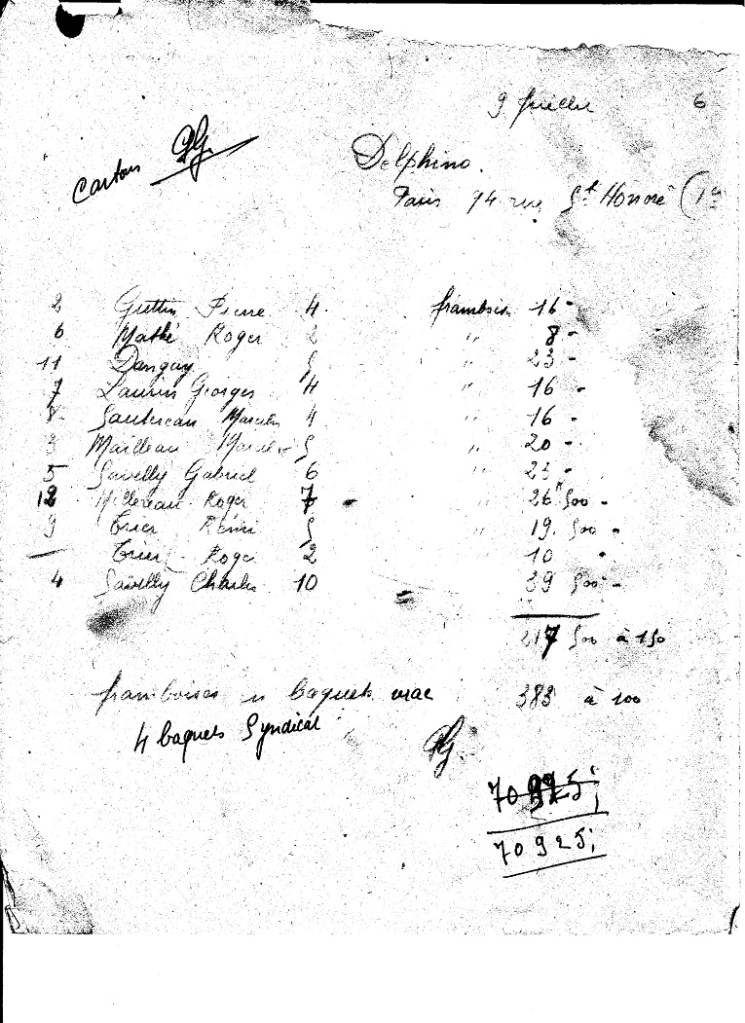 9 Juillet 6
Cartons PG
Delphino.
Paris 94 rue St Honoré (1er
2 Guttin Pierre 4 framboises 16 -
6 Mathé Roger 2 " 8 -
11 Danguy 5 " 23 -
7 Laurin Georges 4 " 16 -
8 Sautereau Marcelin 4 " 16 -
3 Mailleau 5 " 20 -
5 Savelly Gabriel 6 " 23 -
12 Millereau Roger 7 - " 26 K 500 -
9 Rémi 5 " 19. 500 -
— Roger 2 10 -
4 Savelly Charles 10 = 39 500 -
217 500 à 150
framboises en baquets vrac 383 à 100
4 baquets Syndicat PG.
70
70 925;